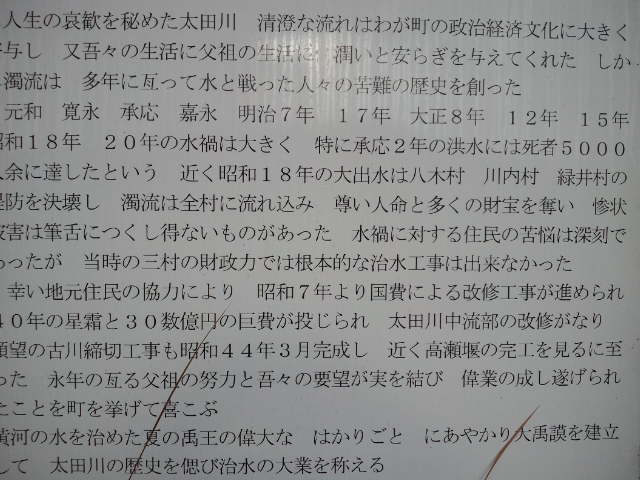 人生の哀歓を秘めた太田川　清澄な流れはわが町の政治経済文化に大きく
寄与し　又吾々の生活に父祖の生活に　潤いと安らぎを与えてくれた　しか
し濁流は　多年に亙って水と戦った人々の苦難の歴史を創った
元和　寛永　承応　嘉永　明治７年　１７年　大正８年　１２年　１５年
昭和１８年　２０年の水禍は大きく　特に承応２年の洪水には死者５０００
人余に達したという　近く昭和１８年の大出水は八木村　川内村　緑井村の
堤防を決壊し　濁流は全村に流れ込み　尊い人命と多くの財宝を奪い　惨状
被害は筆舌につくし得ないものがあった　水禍に対する住民の苦悩は深刻で
あったが　当時の三村の財政力では根本的な治水工事は出来なかった
幸い地元住民の協力により　昭和７年より国費による改修工事が進められ
４０年の星霜と３０数億円の巨費が投じられ　太田川中流部の改修がなり
願望の古川締切工事も昭和４４年３月完成し　近く高瀬堰の完工を見るに至
った　永年の亙る父祖の努力と吾々の要望が実を結び　偉業の成し遂げられ
たことを町を挙げて喜こぶ
黄河の水を治めた夏の禹王の偉大な　はかりごと　にあやかり大禹謨を建立
して　太田川の歴史を偲び治水の大業を称える